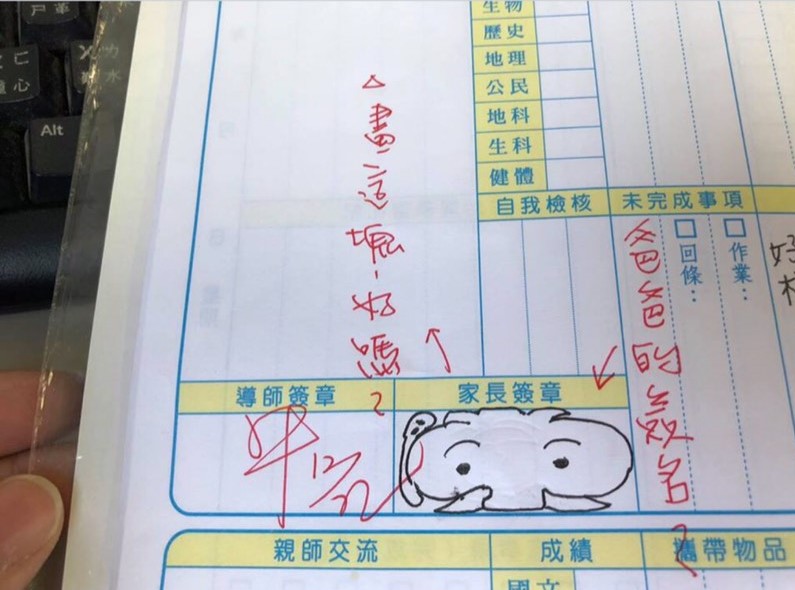 Alt
心
水
生物
歷史
地理
公民
地科
生科
健體
自我檢核
未完成事項
□作業：
□回條：
好
爸爸的簽名？
畫這塊，好嗎？
導師簽章
家長簽章
12/22
親師交流
成績
攜帶物品
國文